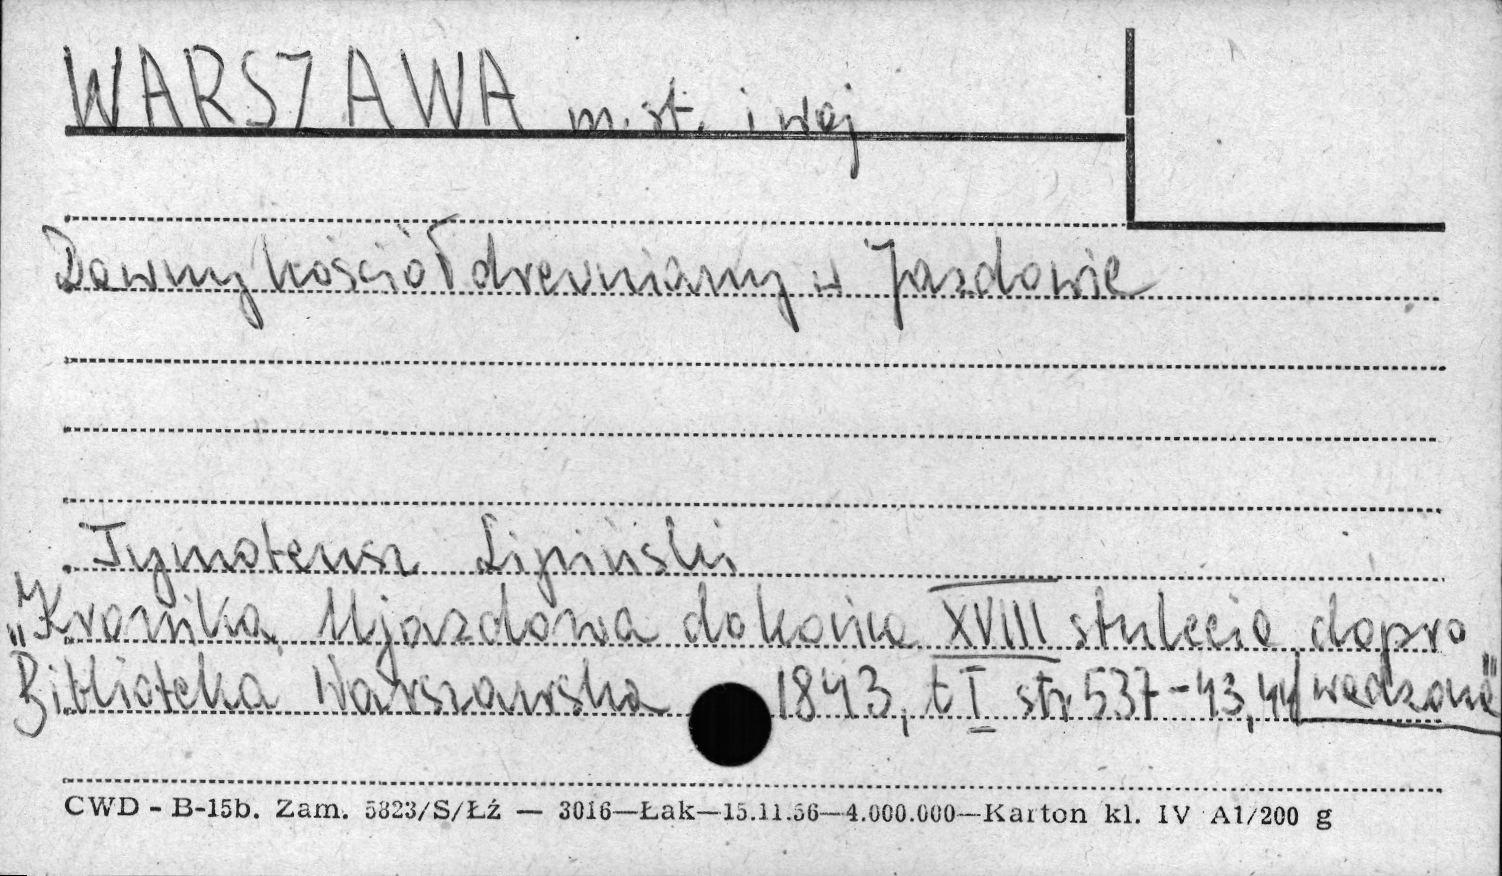 WARSZAWA m. st. i woj
Dawny kościół drewniany w Jazdowie
Tymoteusz Lipiński
„Kronika Ujazdowa do końca XVIII stulecia dopro
Biblioteka Warszawska 1843, t I str 537-43, 44 wadzona"
CWD - B-15b. Zam. 5823/S/Łź — 3016—Łak—15.11.56—4.000.000—Karton kl. IV A1/200 g